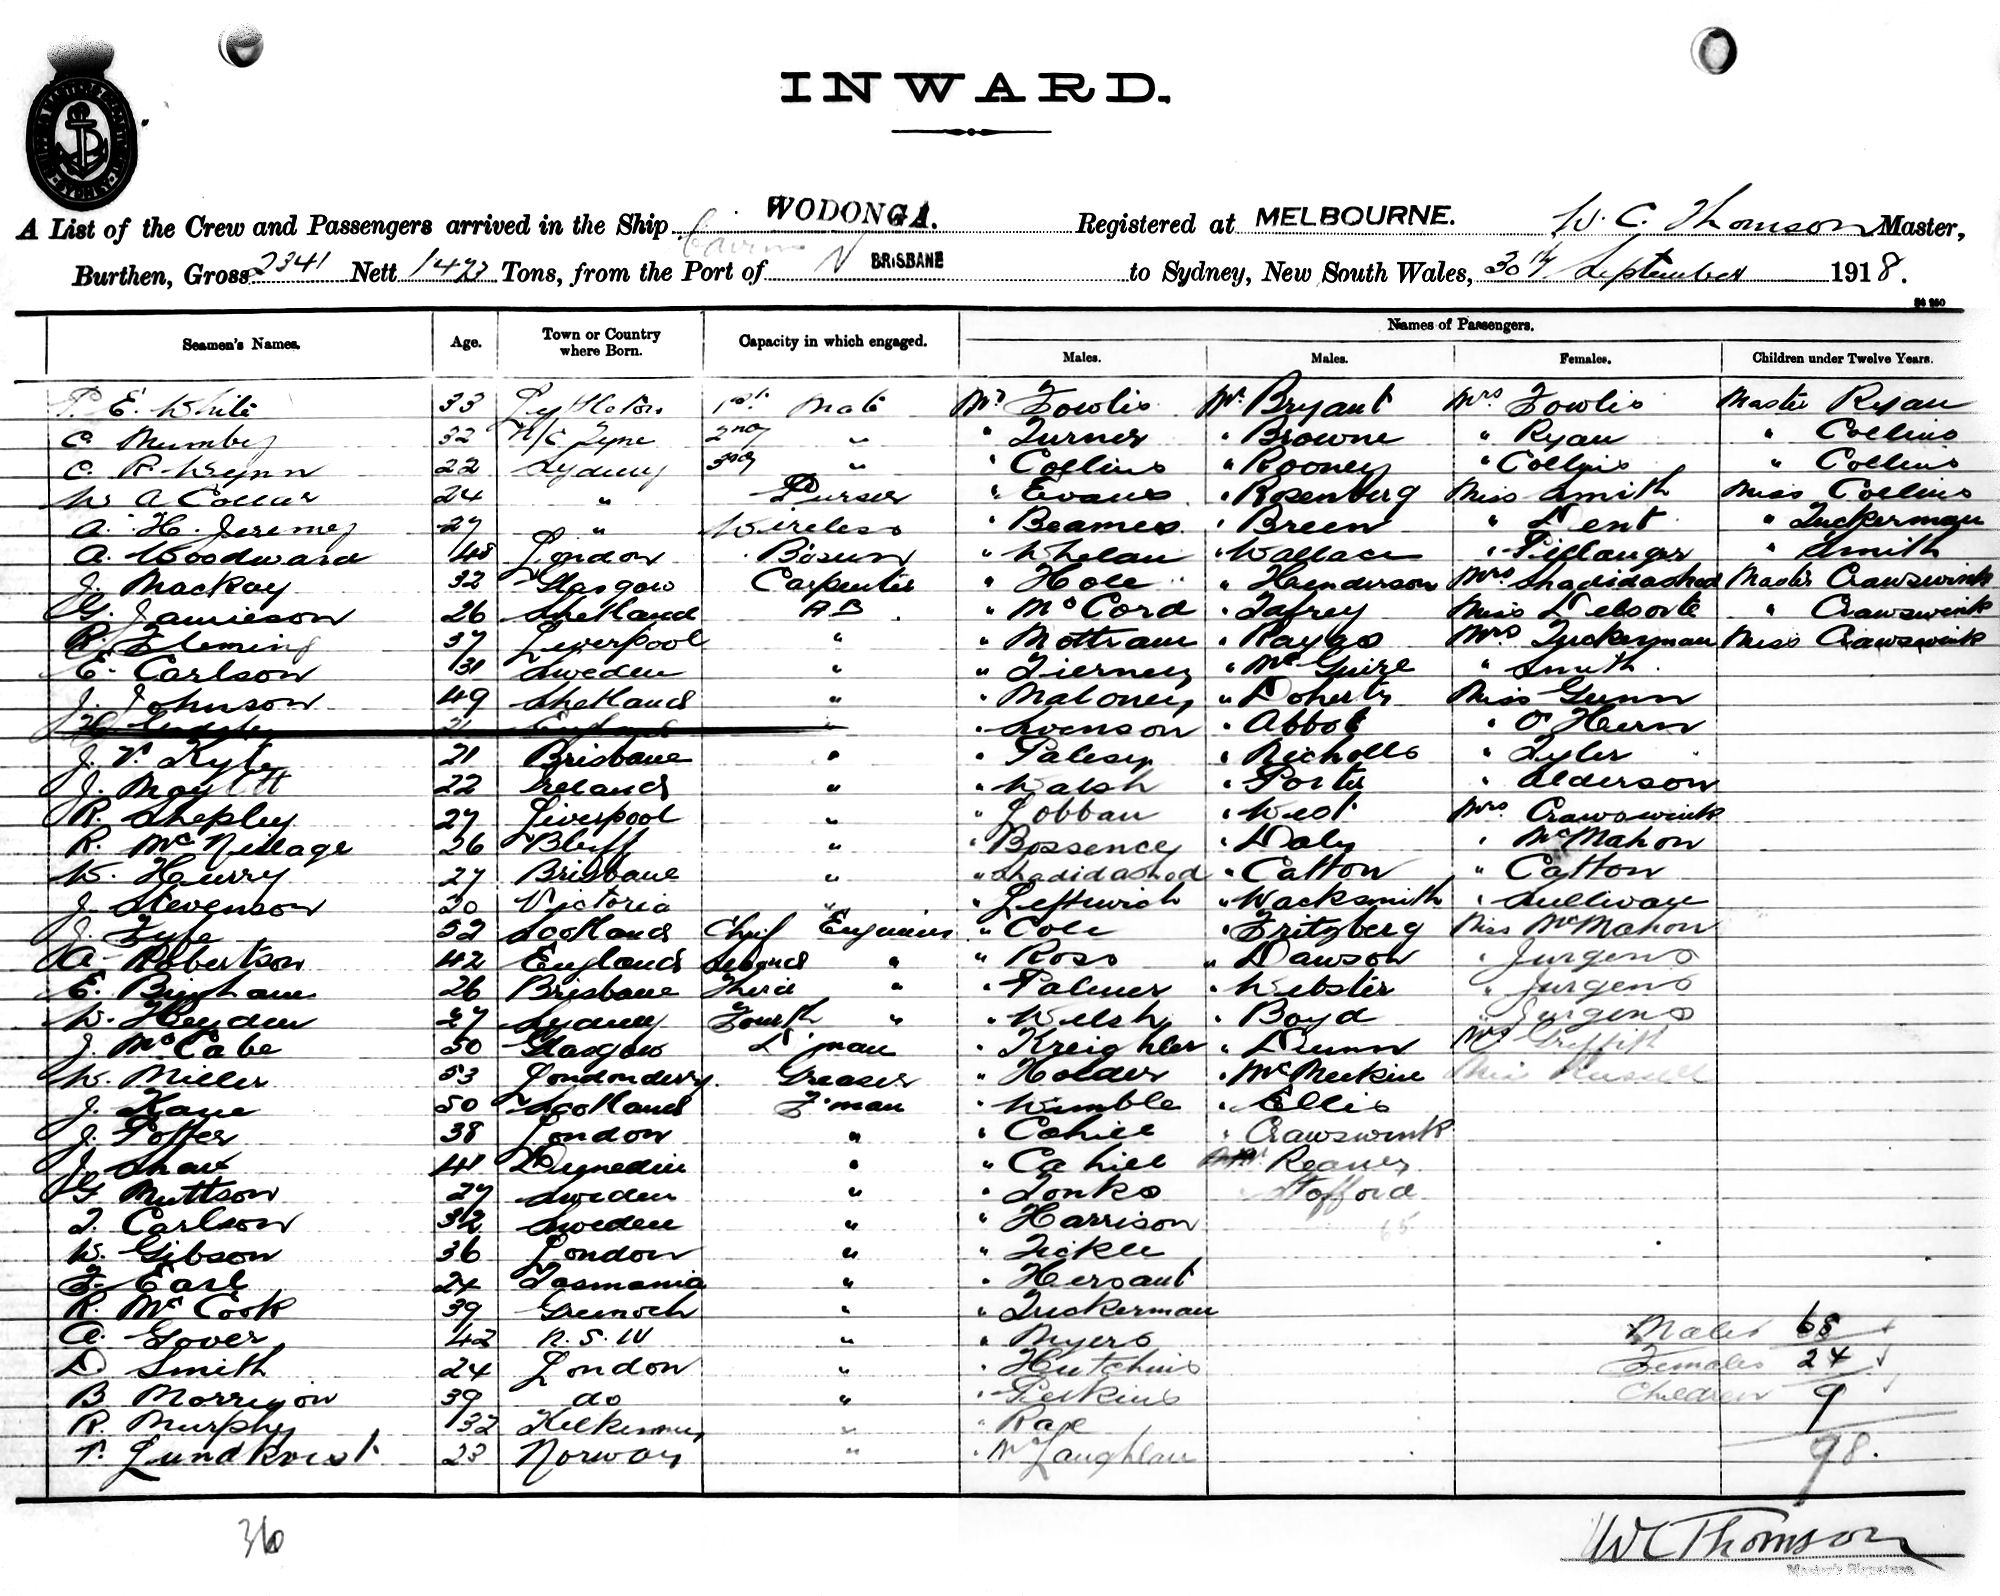 INWARD.
A List of the Crew and Passengers arrived in the Ship WODONGA. Registered at MELBOURNE. W. C. Thomson Master,
Burthen, Gross 2341 Nett 1423 Tons, from the Port of BRISBANE to Sydney, New South Wales, 30th September 1918.
Names of Passengers.
Seamen's Names. Age. Town or Country where Born. Capacity in which engaged. Males. Males. Females. Children under Twelve Years.
E. White 33 Lyttleton 1st Mate Mr Fowlis Mr Bryant Mrs Fowlis Master Ryan
C. Mumby 32 N/C Tyne 2nd " " Turner " Browne " Ryan " Collins
C. R. Wynn 22 Sydney 3rd " " Collins " Rooney " Collins " Collins
W. A. Collar 24 " Purser " Evans " Rosenberg Miss Smith Miss Collins
A. H. Jeremy 27 " Wireless " Beames " Breen " Dent " Tuckerman
A. Woodward 48 London Bosun " Whelan " Wallace " Pillanger " Smith
J. Mackay 32 Glasgow Carpenter " Hole " Henderson Mrs Shadidashed Master Crawswink
G. Jamieson 26 Shetland A B " McCord " Tafrey Miss Delsorte " Crawswink
R. Fleming 37 Liverpool " " Mottram " Raygo Mrs Tuckerman Miss Crawswink
E. Carlson 31 Sweden " " Tierney " McGuire " Smith
J. Johnson 49 Shetland " " Maloney " Doherty Miss Gunn
21 England " " Svenson " Abbot " O'Hern
J. V. Kyte 21 Brisbane " " Palesy " Nicholls " Tyler
J. Maylett 22 Ireland " " Walsh " Porter " Alderson
R. Shepley 27 Liverpool " " Lobban " West Mrs Crawswink
R. McNillage 26 Bluff " " Bossency " Daly " McMahon
W. Hurry 27 Brisbane " " Shadidashed " Catton " Catton
J. Stevenson 20 Victoria " " Leftwich " Wacksmith " Sullivan
J. Fyfe 52 Scotland Chief Engineer " Cole " Fritzberg Miss McMahon
A. Robertson 42 England Second " " Ross " Dawson " Jurgens
E. Bingham 26 Brisbane Third " " Palmer " Webster " Jurgens
W. Heyden 27 Sydney Fourth " " Welsh " Boyd " Jurgens
J. McCabe 50 Glasgow D'man " Kreighler " Dunn Mrs Griffith
W. Miller 53 Londonderry Greaser " Holder " McMeekin Miss Russell
J. Kane 50 Scotland F'man " Wimble " Ellis
J. Potter 38 London " " Cahill " Crawswink
J. Shaw 41 Dunedin " " Cahill Reaney
G. Muttson 27 Sweden " " Tonks Stofford
T. Carlson 32 Sweden " " Harrison 65
W. Gibson 36 London " " Tickle
F. Earl 24 Tasmania " " Hersant
R. McCook 39 Greenock " " Tuckerman
A. Gover 42 N.S.W " " Myers Males 65
D. Smith 24 London " " Hutchins Females 24
B. Morrison 39 do " " Perkins Children 9
R. Murphy 32 Kilkenny " " Rae
T. Lundkvist 23 Norway " " McLaughlan 98.
36
WCThomson
Master's Signature